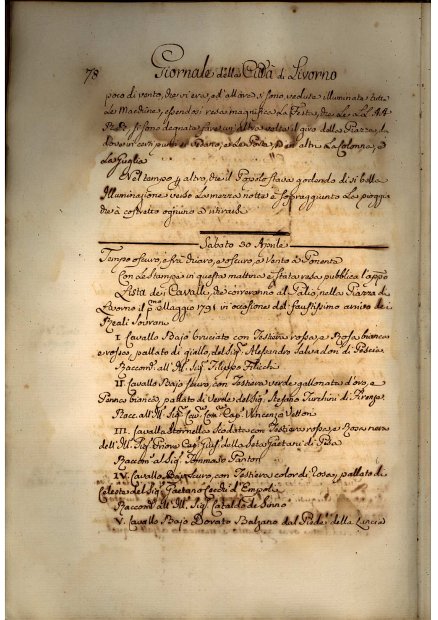 78 Giornale della Città di Livorno
poco di vento, che vi era, ed allora si sono vedute illuminate tutte
le Macchine, essendosi resa magnifica la Festa, che le LL. AA.
RR. si sono degnate fare un'altra volta il giro della Piazza, da
dove in certi punti si vedano, e le Porte, ed in altri la Colonna, e
la Guglia
Nel tempo altro, che il Popolo stava godendo di sì bella
Illuminazione verso la mezza notte è sopraggiunta la pioggia
che à costretto ognuno a ritirarsi
Sabato 30 Aprile
Tempo oscuro, e frà chiaro, e oscuro, e Vento a Ponente
Con le stampe in questa mattina è stata resa pubblica l'appo
Lista dei Cavalli, che correranno al Palio nella Piazza di
Livorno il Maggio 1791 in occasione del faustissimo arrivo dei
Reali Sovrani
I. Cavallo Bajo bruciato con Testiera rossa, e Rosa bianca
e rossa, pallato di giallo, del Sig. Alesandro Salvadori di Pescia
Raccom. all' Ill. Sig. Filippo Filicchi
II. Cavallo Bajo scuro, con Testiera verde gallonata d'oro, e
Penna bianca, pallato di Verde del Sig. Stefano Turchini di Firenze
Racc. all' Ill. Sig. Cav. Com. Cap. Vincenzo Vettori
III. Cavalla Stornella Scodata con Testiera rossa, e Rosa nera
dell' Ill. Sig. Priore Cap. della Seta Gaetani di Pisa
Raccom. al Sig. Tommaso Panton
IV. Cavallo Bajo scuro, con Testiera color di Rosa, e pallato di
Celeste del Sig. Gaetano Cecchi d'Empoli
Raccom. all' Ill. Sig. Cataldo de Sinno
V. Cavallo Bajo Dorato Balzano dal Piede della Lancia